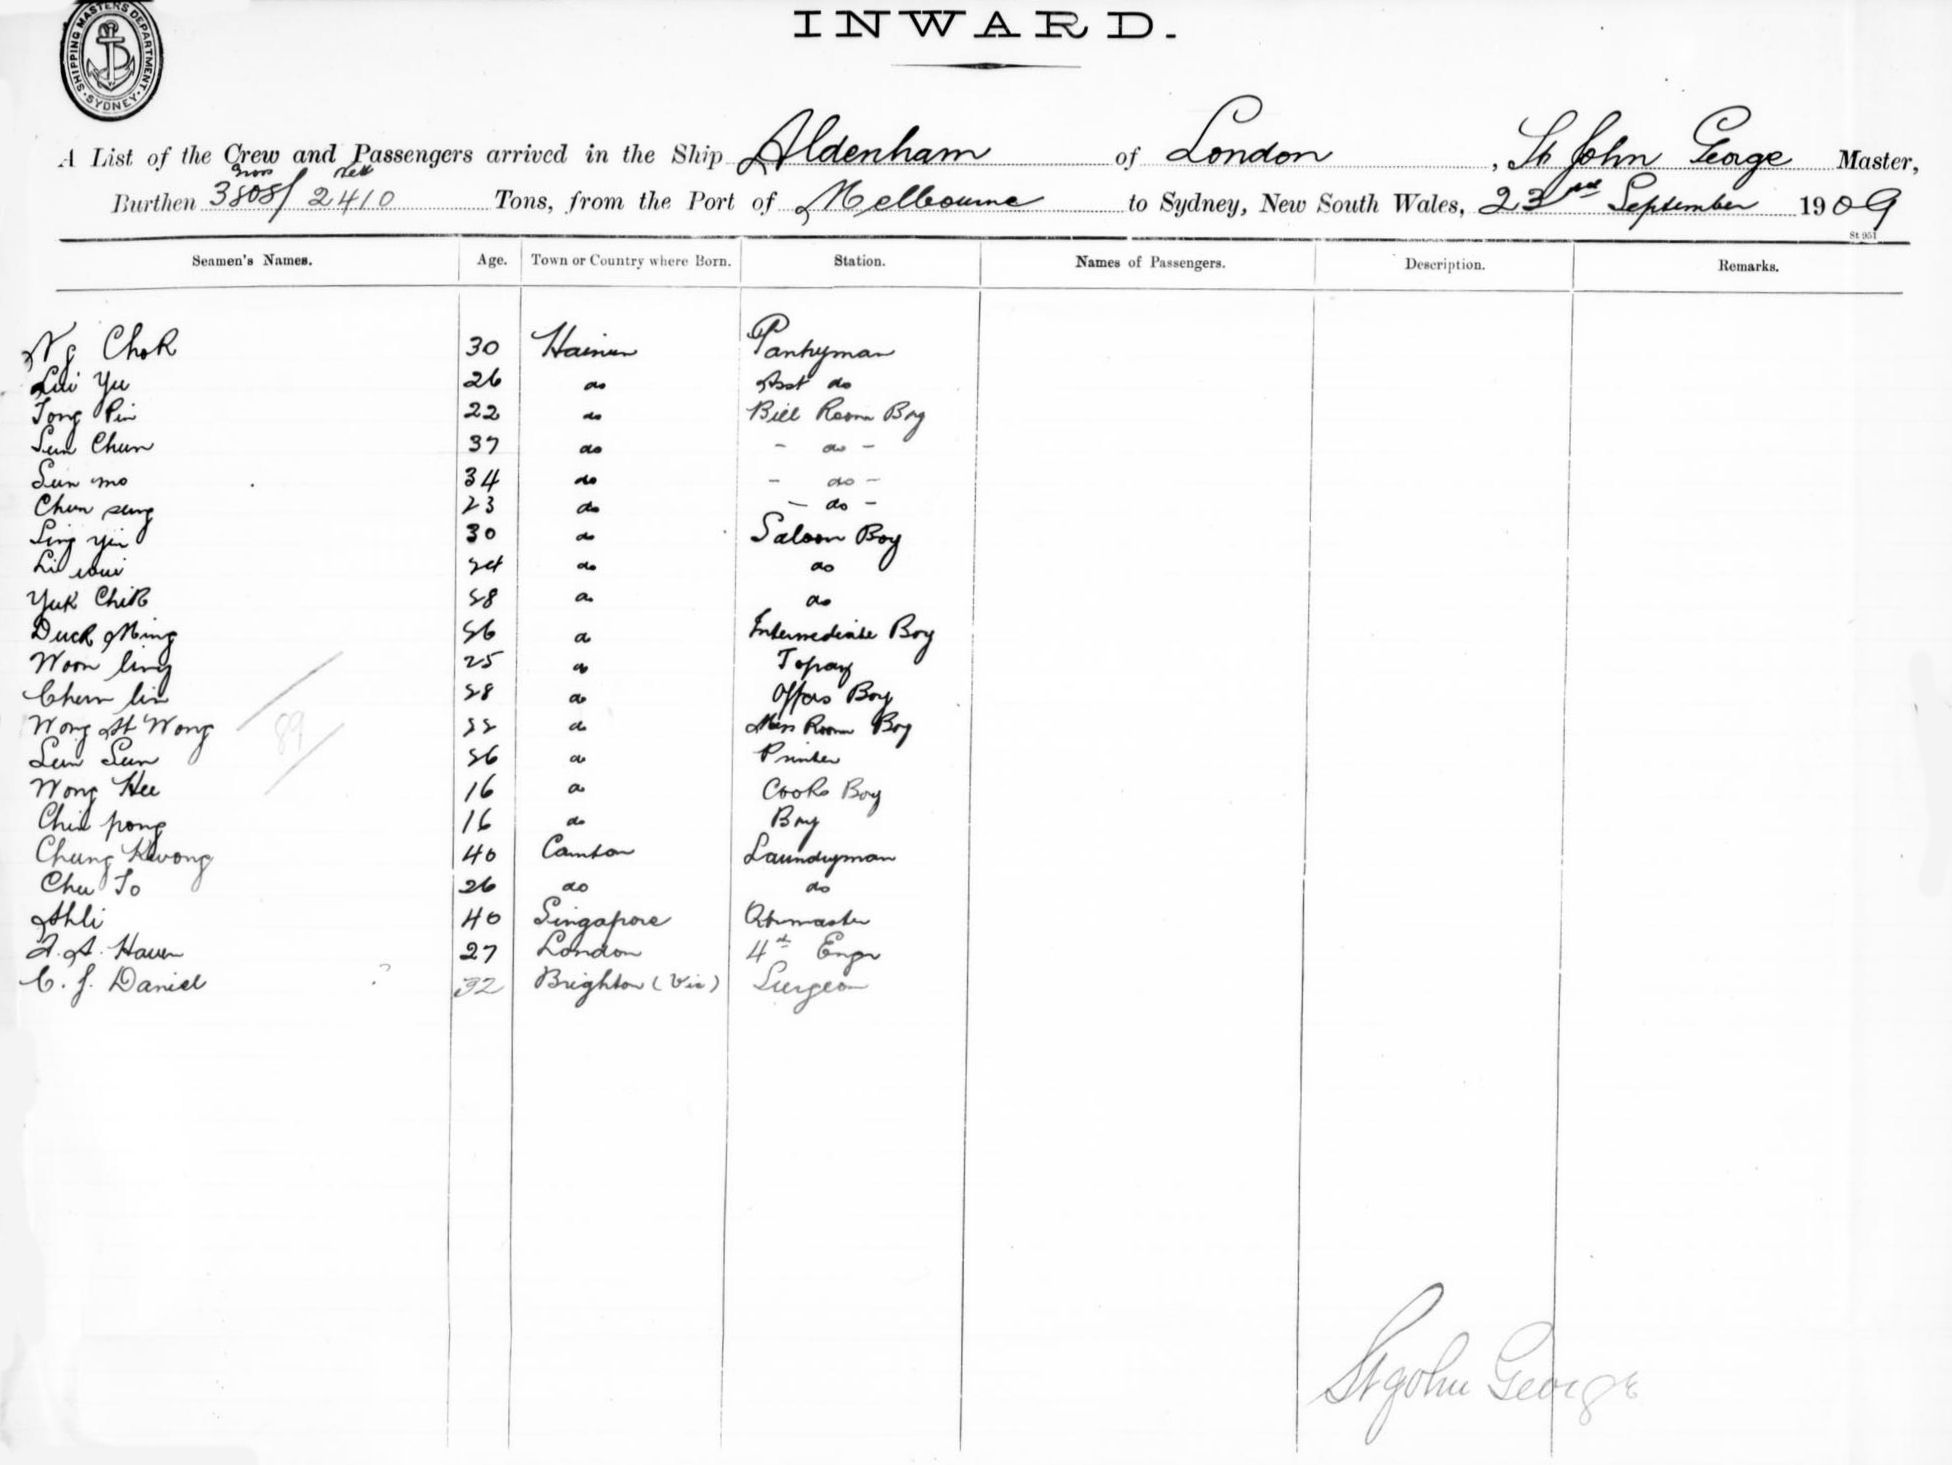 INWARD.
SHIPPING MASTERS DEPARTMENT. SYDNEY.
A List of the Crew and Passengers arrived in the Ship Aldenham of London, St John George Master,
Gross Nett
Burthen 3808/2410 Tons, from the Port of Melbourne to Sydney, New South Wales, 23rd September 1909
St 951
Seamen's Names. Age. Town or Country where Born. Station. Names of Passengers. Description. Remarks.
Ng Chok 30 Hainan Pantryman
Lui Yu 26 do Asst do
Tong Pin 22 do Bill Room Boy
Sun Chun 37 do - do -
Sun mo 34 do - do -
Chun 23 do - do -
Ling Yin 30 do Saloon Boy
Li 24 do do
Yuk Chik 28 do do
Duck Ming 26 do Intermediate Boy
Woon ling 25 do Topay
Chern lin 28 do Offers Boy
Wong At Wong 22 do Mess Room Boy
89
Sun 26 do Printer
Wong Hee 16 do Cooks Boy
Chin pong 16 do Boy
Chung Kwong 40 Canton Laundryman
Chu To 26 do do
Ahli 40 Singapore Qtrmaster
A. 27 London 4th Engr
C. J. Daniel ? 32 Brighton (Vic) Surgeon
St John George